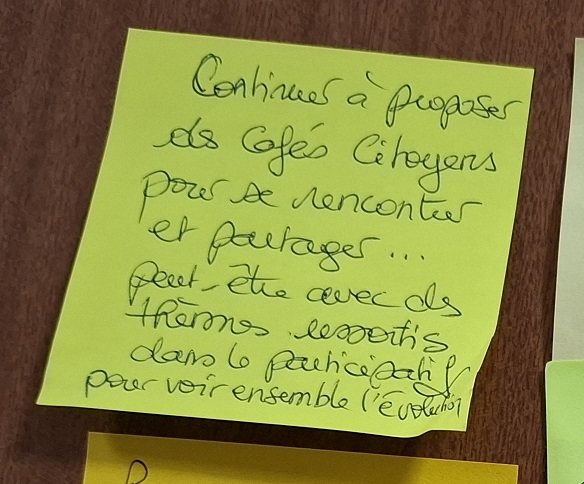 Continuer à proposer
des Cafés Citoyens
pour se rencontrer
et partager...
peut-être avec des
thèmes ressortis
dans le participatif
pour voir ensemble l'évolution